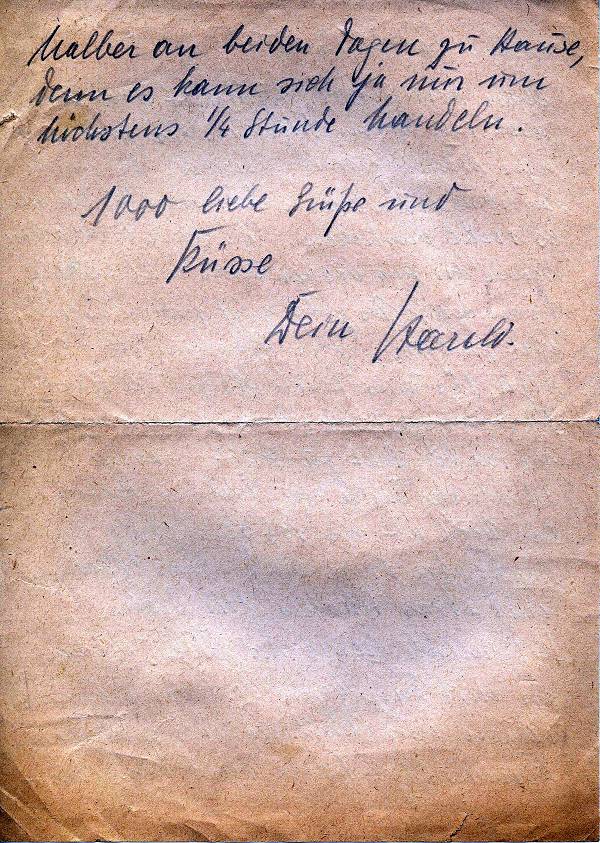 halber an beiden Tagen zu Hause,
denn es kann sich ja nur um
höchstens 1/4 Stunde handeln.
1000 liebe Grüße und
Küsse
Dein Harald.